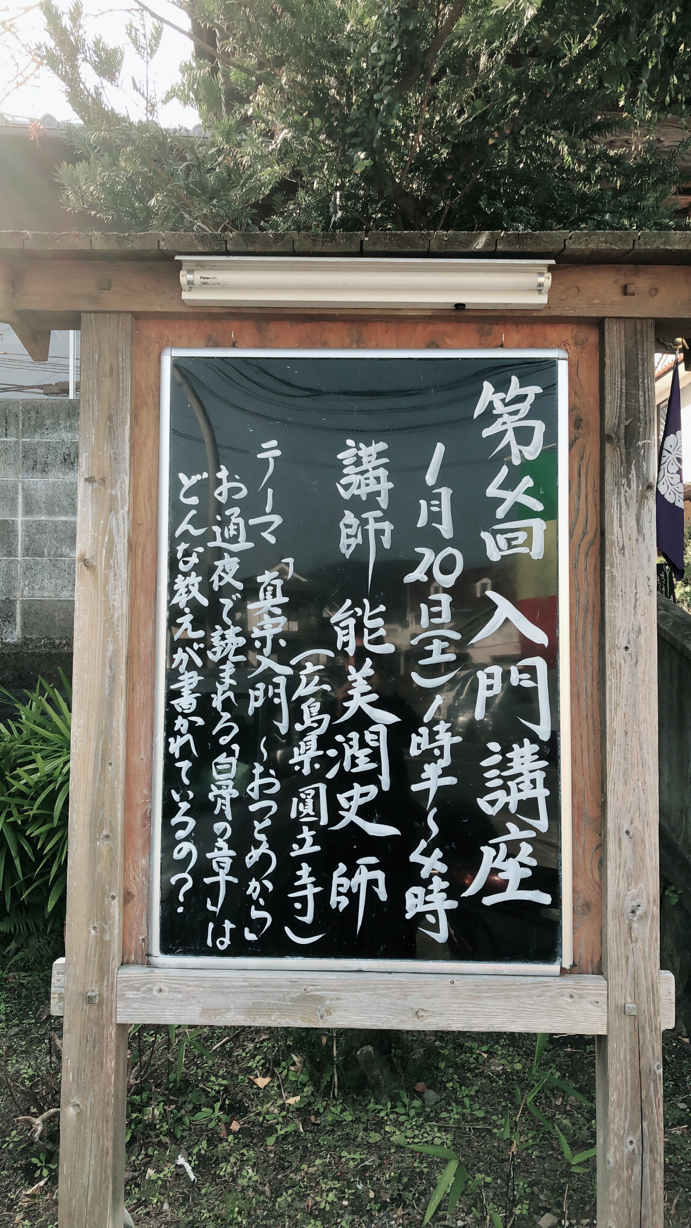 第4回 入門講座
1月20日(土)1時半~4時
講師 能美潤史 師
(広島県 圓立寺)
テーマ「真宗入門~おつとめから」
お通夜で読まれる「白骨の章」は
どんな教えが書かれているの?